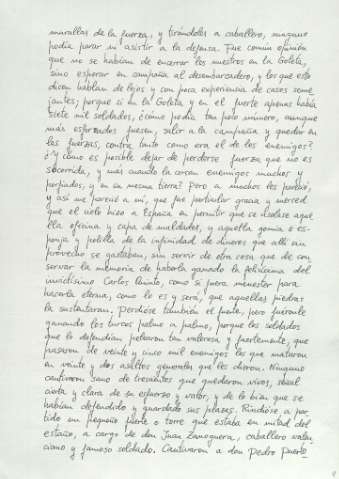 murallas de la fuerza, y tirándoles a caballero, ninguno
podía parar ni asistir a la defensa. Fue común opinión
que no se habían de encerrar los nuestros en la Goleta,
sino esperar en campaña al desembarcadero, y los que esto
dicen hablan de lejos y con poca experiencia de casos seme
jantes; porque si en la Goleta y en el fuerte apenas había
siete mil soldados, ¿cómo podía tan poco número, aunque
más esforzados fuesen, salir a la campaña y quedar en
las fuerzas, contra tanto como era el de los enemigos?
¿y cómo es posible dejar de perderse fuerza que no es
socorrida, y más cuando la cercan enemigos muchos y
porfiados, y en su mesma tierra? Pero a muchos les pareció,
y así me pareció a mí, que fue particular gracia y merced
que el cielo hizo a España en permitir que se asolase aque
lla oficina y capa de maldades, y aquella gomia o es-
ponja y polilla de la infinidad de dineros que allí sin
provecho se gastaban, sin servir de otra cosa que de con
servar la memoria de haberla ganado la felicísima del
invictísimo Carlos Quinto, como si fuera menester para
hacerla eterna, como lo es y será, que aquellas piedras
la sustentaran. Perdióse también el fuerte, pero fuéronle
ganando los turcos palmo a palmo, porque los soldados
que lo defendían pelearon tan valerosa y fuertemente, que
pasaron de veinte y cinco mil enemigos los que mataron
en veinte y dos asaltos generales que les dieron. Ninguno
cautivaron sano de trescientos que quedaron vivos, señal
cierta y clara de su esfuerzo y valor, y de lo bien que se
habían defendido y guardado sus plazas. Rindióse a par
tido un pequeño fuerte o torre que estaba en mitad del
estaño, a cargo de don Juan Zanoguera, caballero valen
ciano y famoso soldado. Cautivaron a don Pedro Puerto